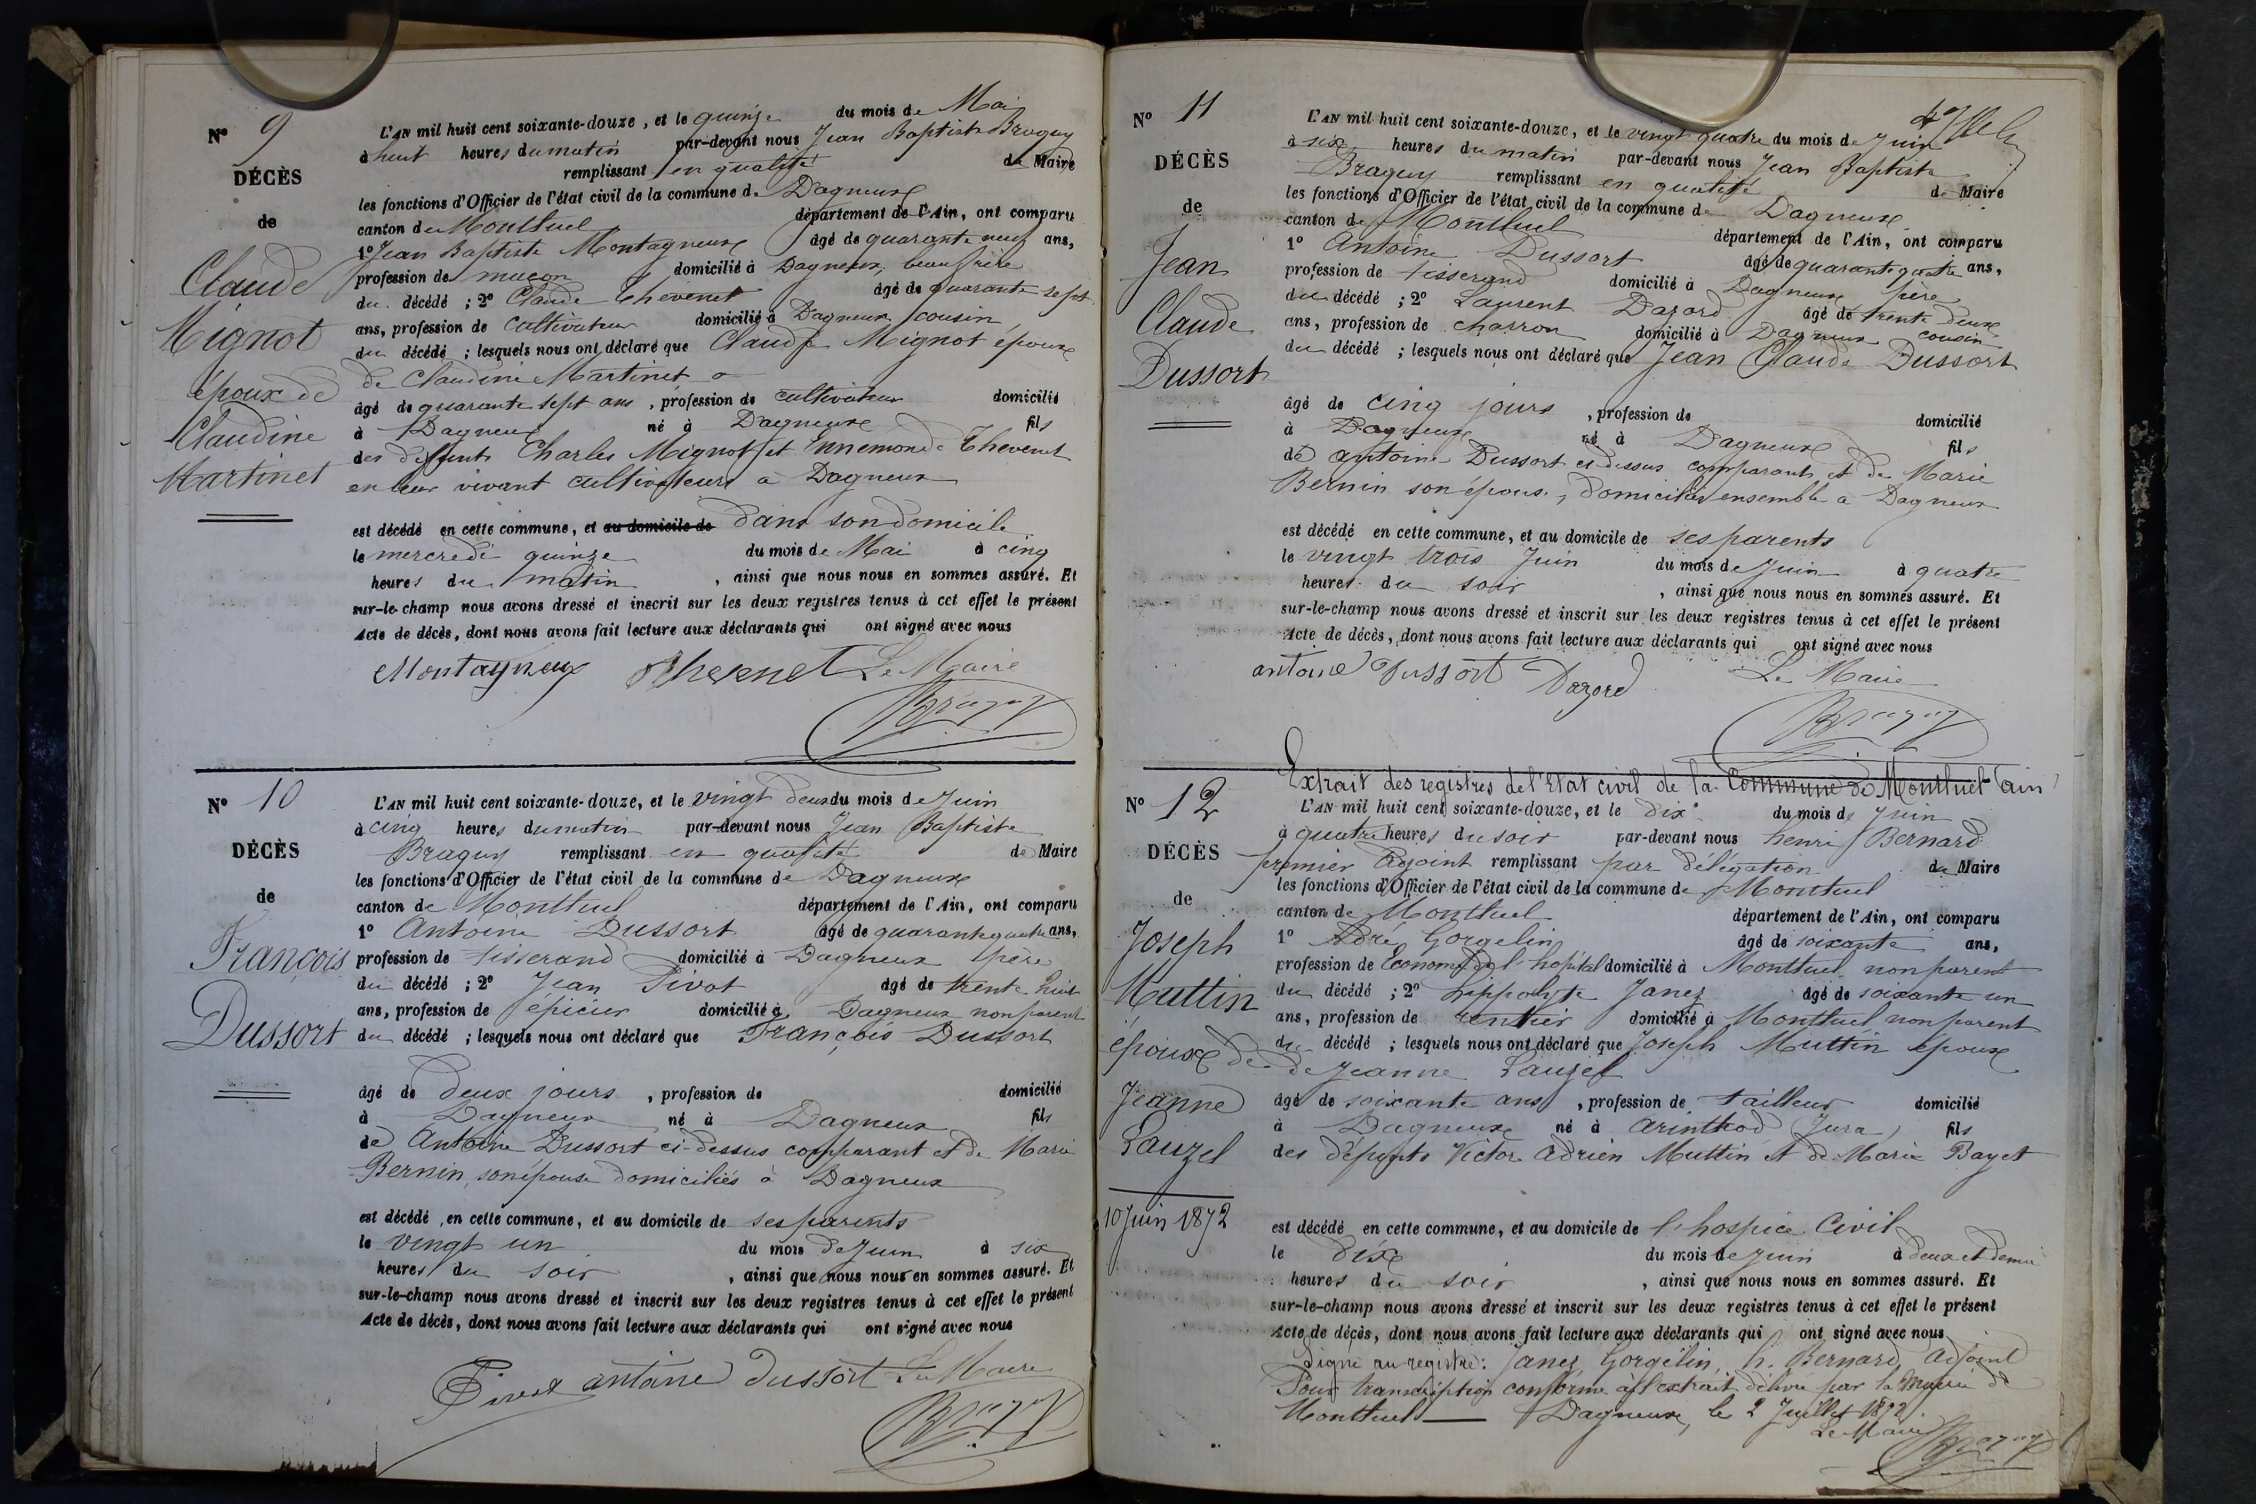 N° 9
DÉCÈS
de
Claude
Mignot
époux de
Claudine
Martinet
L'AN mil huit cent soixante-douze, et le quinze du mois de Mai
à huit heures du matin par-devant nous Jean Baptiste Braguy
remplissant en qualité de Maire
les fonctions d'Officier de l'état civil de la commune de Dagneux
canton de Montluel département de l'Ain, ont comparu
1° Jean Baptiste Montagneux âgé de quarante neuf ans,
profession de maçon domicilié à Dagneux, beau frère
du décédé ; 2° Claude Thevenet âgé de quarante sept
ans, profession de cultivateur domicilié à Dagneux cousin
du décédé ; lesquels nous ont déclaré que Claude Mignot époux
de Claudine Martinet
âgé de quarante sept ans, profession de cultivateur domicilié
à Dagneux né à Dagneux fils
des défunts Charles Mignot et Ennemonde Thevenet
en leur vivant cultivateurs à Dagneux
est décédé en cette commune, et au domicile de dans son domicile
le mercredi quinze du mois de Mai à cinq
heures du matin, ainsi que nous nous en sommes assuré. Et
sur-le-champ nous avons dressé et inscrit sur les deux registres tenus à cet effet le présent
Acte de décès, dont nous avons fait lecture aux déclarants qui ont signé avec nous
Montagneux Thevenet Le Maire
Braguy
N° 10
DÉCÈS
de
François
Dussort
L'AN mil huit cent soixante-douze, et le vingt deux du mois de Juin
à cinq heures du matin par-devant nous Jean Baptiste
Braguy remplissant en qualité de Maire
les fonctions d'Officier de l'état civil de la commune de Dagneux
canton de Montluel département de l'Ain, ont comparu
1° Antoine Dussort âgé de quarante quatre ans,
profession de tisserand domicilié à Dagneux père
du décédé ; 2° Jean Pivot âgé de trente huit
ans, profession de épicier domicilié à Dagneux non parent
du décédé ; lesquels nous ont déclaré que François Dussort
âgé de deux jours, profession de domicilié
à Dagneux né à Dagneux fils
de Antoine Dussort ci-dessus comparant et de Marie
Bernin son épouse domiciliés à Dagneux
est décédé en cette commune, et au domicile de ses parents
le vingt un du mois de Juin à six
heures du soir, ainsi que nous nous en sommes assuré. Et
sur-le-champ nous avons dressé et inscrit sur les deux registres tenus à cet effet le présent
Acte de décès, dont nous avons fait lecture aux déclarants qui ont signé avec nous
Pivot antoine Dussort Le Maire
Braguy
N° 11
DÉCÈS
de
Jean
Claude
Dussort
L'AN mil huit cent soixante-douze, et le vingt quatre du mois de Juin
à six heures du matin par-devant nous Jean Baptiste
Braguy remplissant en qualité de Maire
les fonctions d'Officier de l'état civil de la commune de Dagneux
canton de Montluel département de l'Ain, ont comparu
1° Antoine Dussort âgé de quarante quatre ans,
profession de tisserand domicilié à Dagneux père
du décédé ; 2° Laurent Dazord âgé de trente deux
ans, profession de charron domicilié à Dagneux cousin
du décédé ; lesquels nous ont déclaré que Jean Claude Dussort
âgé de cinq jours, profession de domicilié
à Dagneux né à Dagneux fils
de antoine Dussort ci dessus comparant et de Marie
Bernin son épouse, domiciliés ensemble à Dagneux
est décédé en cette commune, et au domicile de ses parents
le vingt trois Juin du mois de Juin à quatre
heures du soir, ainsi que nous nous en sommes assuré. Et
sur-le-champ nous avons dressé et inscrit sur les deux registres tenus à cet effet le présent
Acte de décès, dont nous avons fait lecture aux déclarants qui ont signé avec nous
antoine Dussort Dazord Le Maire
Braguy
N° 12
DÉCÈS
de
Joseph
Muttin
époux de
Jeanne
Lauzel
10 Juin 1872
Extrait des registres de l'Etat civil de la Commune de Montluel (ain)
L'AN mil huit cent soixante-douze, et le dix du mois de Juin
à quatre heures du soir par-devant nous henri Bernard
premier adjoint remplissant par délégation de Maire
les fonctions d'Officier de l'état civil de la commune de Montluel
canton de Montluel département de l'Ain, ont comparu
1° Gorgelin âgé de soixante ans,
profession de Econome de l'hopital domicilié à Montluel non parent
du décédé ; 2° hippolyte Janez âgé de soixante un
ans, profession de rentier domicilié à Montluel non parent
du décédé ; lesquels nous ont déclaré que Joseph Muttin époux
de Jeanne Lauzel
âgé de soixante ans, profession de tailleur domicilié
à Dagneux né à arinthod (Jura) fils
des défunts Victor adrien Muttin et de Marie Bayet
est décédé en cette commune, et au domicile de l'hospice Civil
le dix du mois de Juin à deux et demie
heures du soir, ainsi que nous nous en sommes assuré. Et
sur-le-champ nous avons dressé et inscrit sur les deux registres tenus à cet effet le présent
Acte de décès, dont nous avons fait lecture aux déclarants qui ont signé avec nous
Signé au registre : Janez, Gorgelin, h. Bernard, adjoint
Pour transcription conforme à l'extrait délivré par la Mairie de
Montluel — Dagneux, le 2 Juillet 1872.
Le Maire Braguy